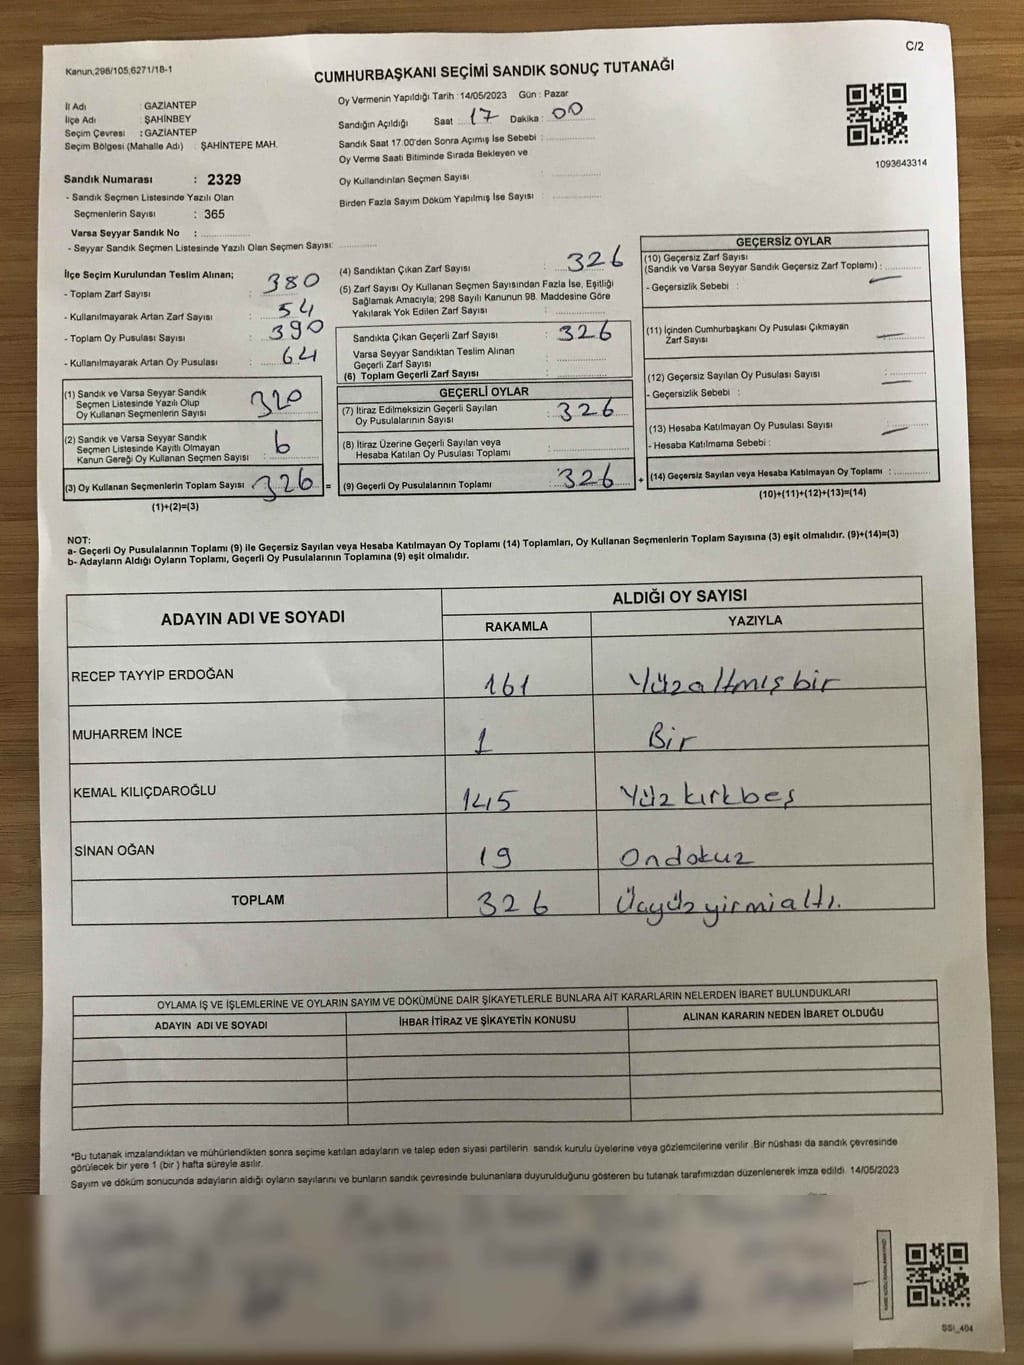 C/2
Kanun,298/105,6271/18-1
CUMHURBAŞKANI SEÇİMİ SANDIK SONUÇ TUTANAĞI
İl Adı : GAZİANTEP
İlçe Adı : ŞAHİNBEY
Seçim Çevresi : GAZİANTEP
Seçim Bölgesi (Mahalle Adı) : ŞAHİNTEPE MAH.
Sandık Numarası : 2329
- Sandık Seçmen Listesinde Yazılı Olan
Seçmenlerin Sayısı : 365
Varsa Seyyar Sandık No :
- Seyyar Sandık Seçmen Listesinde Yazılı Olan Seçmen Sayısı:
Oy Vermenin Yapıldığı Tarih : 14/05/2023 Gün : Pazar
Sandığın Açıldığı Saat : 17 Dakika : 00
Sandık Saat 17.00'den Sonra Açımış İse Sebebi :
Oy Verme Saati Bitiminde Sırada Bekleyen ve
Oy Kullandırılan Seçmen Sayısı :
Birden Fazla Sayım Döküm Yapılmış İse Sayısı :
1093643314
İlçe Seçim Kurulundan Teslim Alınan;
- Toplam Zarf Sayısı : 380
- Kullanılmayarak Artan Zarf Sayısı : 54
- Toplam Oy Pusulası Sayısı : 390
- Kullanılmayarak Artan Oy Pusulası : 64
(1) Sandık ve Varsa Seyyar Sandık
Seçmen Listesinde Yazılı Olup
Oy Kullanan Seçmenlerin Sayısı : 320
(2) Sandık ve Varsa Seyyar Sandık
Seçmen Listesinde Kayıtlı Olmayan
Kanun Gereği Oy Kullanan Seçmen Sayısı : 6
(3) Oy Kullanan Seçmenlerin Toplam Sayısı : 326 =
(1)+(2)=(3)
(4) Sandıktan Çıkan Zarf Sayısı : 326
(5) Zarf Sayısı Oy Kullanan Seçmen Sayısından Fazla İse, Eşitliği
Sağlamak Amacıyla; 298 Sayılı Kanunun 98. Maddesine Göre
Yakılarak Yok Edilen Zarf Sayısı :
Sandıkta Çıkan Geçerli Zarf Sayısı : 326
Varsa Seyyar Sandıktan Teslim Alınan
Geçerli Zarf Sayısı :
(6) Toplam Geçerli Zarf Sayısı :
GEÇERLİ OYLAR
(7) İtiraz Edilmeksizin Geçerli Sayılan
Oy Pusulalarının Sayısı : 326
(8) İtiraz Üzerine Geçerli Sayılan veya
Hesaba Katılan Oy Pusulası Toplamı :
(9) Geçerli Oy Pusulalarının Toplamı : 326 +
GEÇERSİZ OYLAR
(10) Geçersiz Zarf Sayısı
(Sandık ve Varsa Seyyar Sandık Geçersiz Zarf Toplamı) :
- Geçersizlik Sebebi : —
(11) İçinden Cumhurbaşkanı Oy Pusulası Çıkmayan
Zarf Sayısı : —
(12) Geçersiz Sayılan Oy Pusulası Sayısı : —
- Geçersizlik Sebebi :
(13) Hesaba Katılmayan Oy Pusulası Sayısı : —
- Hesaba Katılmama Sebebi :
(14) Geçersiz Sayılan veya Hesaba Katılmayan Oy Toplamı :
(10)+(11)+(12)+(13)=(14)
NOT:
a- Geçerli Oy Pusulalarının Toplamı (9) ile Geçersiz Sayılan veya Hesaba Katılmayan Oy Toplamı (14) Toplamları, Oy Kullanan Seçmenlerin Toplam Sayısına (3) eşit olmalıdır. (9)+(14)=(3)
b- Adayların Aldığı Oyların Toplamı, Geçerli Oy Pusulalarının Toplamına (9) eşit olmalıdır.
ADAYIN ADI VE SOYADI ALDIĞI OY SAYISI
RAKAMLA YAZIYLA
RECEP TAYYİP ERDOĞAN 161 Yüzaltmışbir
MUHARREM İNCE 1 Bir
KEMAL KILIÇDAROĞLU 145 Yüzkırkbeş
SİNAN OĞAN 19 Ondokuz
TOPLAM 326 Üçyüzyirmialtı.
OYLAMA İŞ VE İŞLEMLERİNE VE OYLARIN SAYIM VE DÖKÜMÜNE DAİR ŞİKAYETLERLE BUNLARA AİT KARARLARIN NELERDEN İBARET BULUNDUKLARI
ADAYIN ADI VE SOYADI İHBAR İTİRAZ VE ŞİKAYETİN KONUSU ALINAN KARARIN NEDEN İBARET OLDUĞU
*Bu tutanak imzalandıktan ve mühürlendikten sonra seçime katılan adayların ve talep eden siyasi partilerin sandık kurulu üyelerine veya gözlemcilerine verilir .Bir nüshası da sandık çevresinde
görülecek bir yere 1 (bir ) hafta süreyle asılır.
Sayım ve döküm sonucunda adayların aldığı oyların sayılarını ve bunların sandık çevresinde bulunanlara duyurulduğunu gösteren bu tutanak tarafımızdan düzenlenerek imza edildi. 14/05/2023
SSI_404